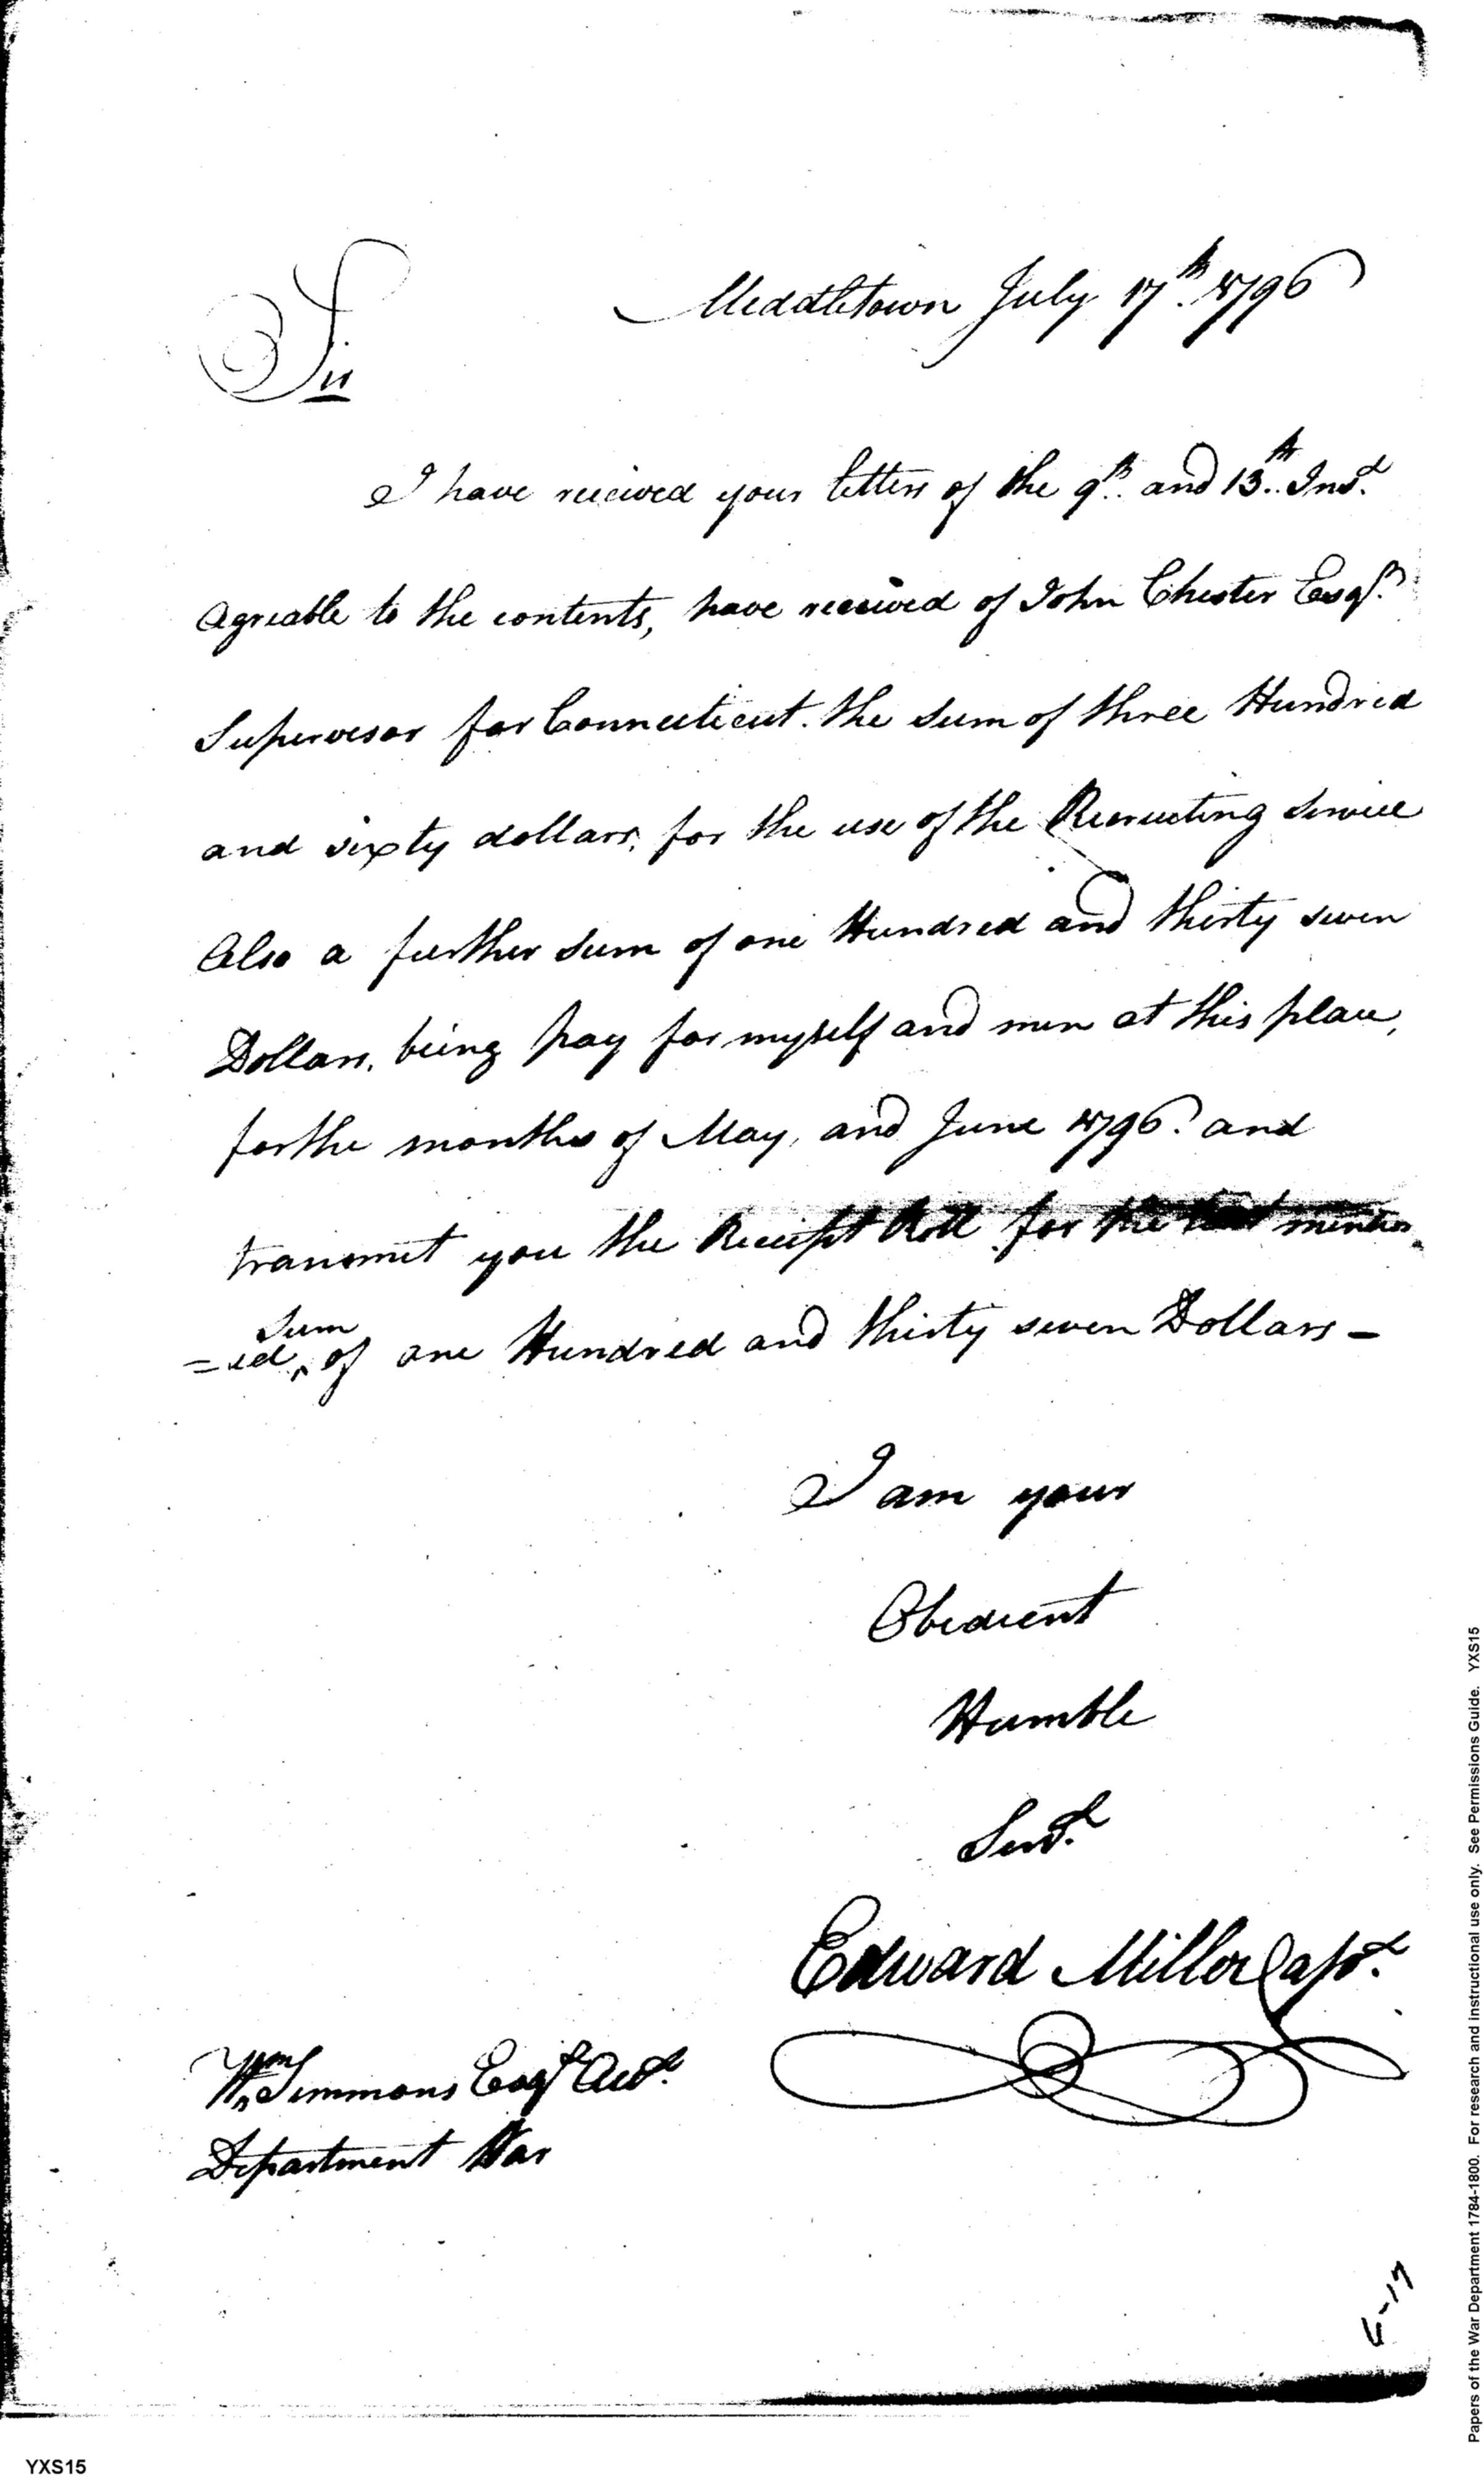 Middletown July 17th. 1796
Sir
I have received your letters of the 9th. and 13th. Inst.
Agreable to the contents, have received of John Chester Esqr.
Supervisor for Connecticut. the sum of three Hundred
and sixty dollars, for the use of the Recruiting Service
Also a further sum of one Hundred and thirty seven
Dollars, being pay for myself and men at this place,
for the months of May, and June 1796. and
transmit you the Receipt Roll for the last mention
=ed, sum of one Hundred and thirty seven Dollars -
I am your
Obedient
Humble
Servt.
Edward Miller Capt.
Wm Simmons Esqr Acct.
Department War
Papers of the War Department 1784-1800. For research and instructional use only. See Permissions Guide. YXS15
YXS15